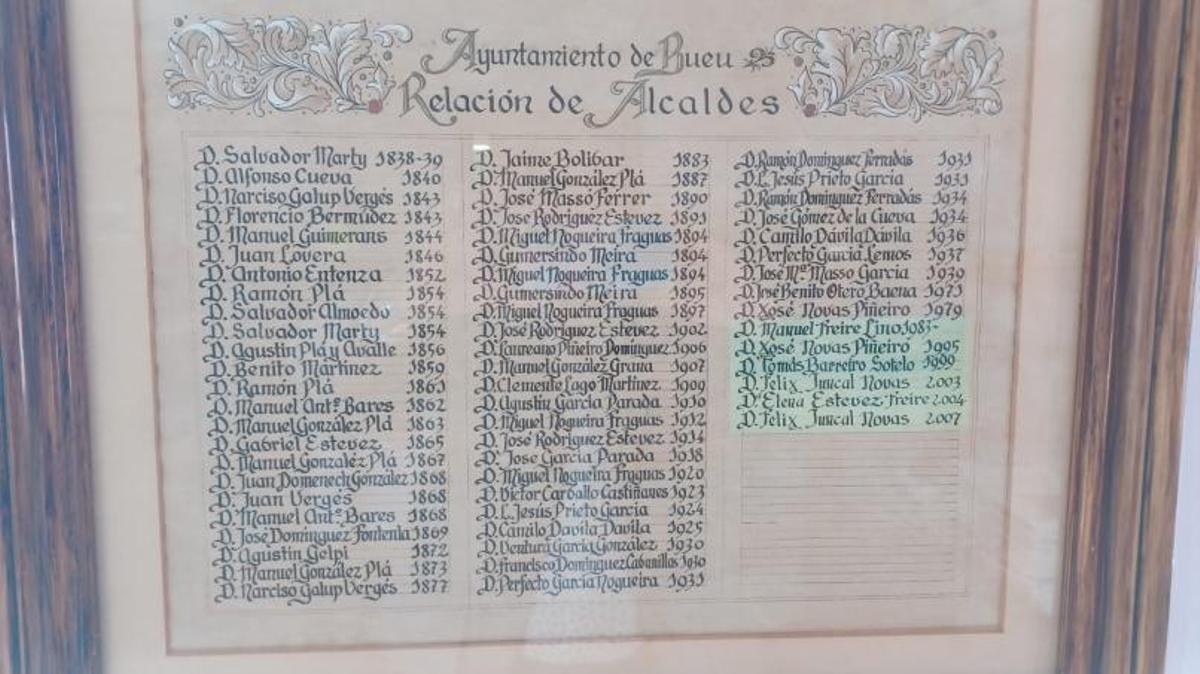 Ayuntamiento de Bueu
Relación de Alcaldes
D. Salvador Marty 1838-39
D. Alfonso Cueva 1840
D. Narciso Galup Vergés 1843
D. Florencio Bermúdez 1843
D. Manuel Guimerans 1844
D. Juan Lovera 1846
D. Antonio Entenza 1852
D. Ramón Plá 1854
D. Salvador Almoedo 1854
D. Salvador Marty 1854
D. Agustín Plá y Avalle 1856
D. Benito Martínez 1859
D. Ramón Plá 1861
D. Manuel Antº Bares 1862
D. Manuel González Plá 1863
D. Gabriel Estevez 1865
D. Manuel González Plá 1867
D. Juan Domenech González 1868
D. Juan Vergés 1868
D. Manuel Antº Bares 1868
D. José Domínguez Fontenla 1869
D. Agustín Gelpi 1872
D. Manuel González Plá 1873
D. Narciso Galup Vergés 1877
D. Jaime Bolibar 1883
D. Manuel González Plá 1887
D. José Massó Ferrer 1890
D. Jose Rodriguez Estevez 1891
D. Miguel Nogueira Fraguas 1894
D. Gumersindo Meira 1894
D. Miguel Nogueira Fraguas 1894
D. Gumersindo Meira 1895
D. Miguel Nogueira Fraguas 1897
D. José Rodríguez Estevez 1902
D. Laureano Piñeiro Domínguez 1906
D. Manuel González Grana 1907
D. Clemente Lago Martínez 1909
D. Agustín García Parada 1910
D. Miguel Nogueira Fraguas 1912
D. José Rodríguez Estevez 1914
D. Jose García Parada 1918
D. Miguel Nogueira Fraguas 1920
D. Víctor Carballo Castiñares 1923
D. L. Jesús Prieto García 1924
D. Camilo Davila Davila 1925
D. Ventura García González 1930
D. Francisco Domínguez Cabanillas 1930
D. Perfecto García Nogueira 1931
D. Ramón Domínguez Ferradás 1931
D. L. Jesús Prieto García 1931
D. Ramón Domínguez Ferradás 1934
D. José Gómez de la Cueva 1934
D. Camilo Dávila Dávila 1936
D. Perfecto García Lemos 1937
D. José Mª Masso García 1939
D. José Benito Otero Baena 1971
D. Xosé Novas Piñeiro 1979
D. Manuel Freire Lino 1983-
D. Xosé Novas Piñeiro 1995
D. Tomás Barreiro Sotelo 1999
D. Felix Juncal Novas 2003
Dª Elena Estevez Freire 2004
D. Felix Juncal Novas 2007